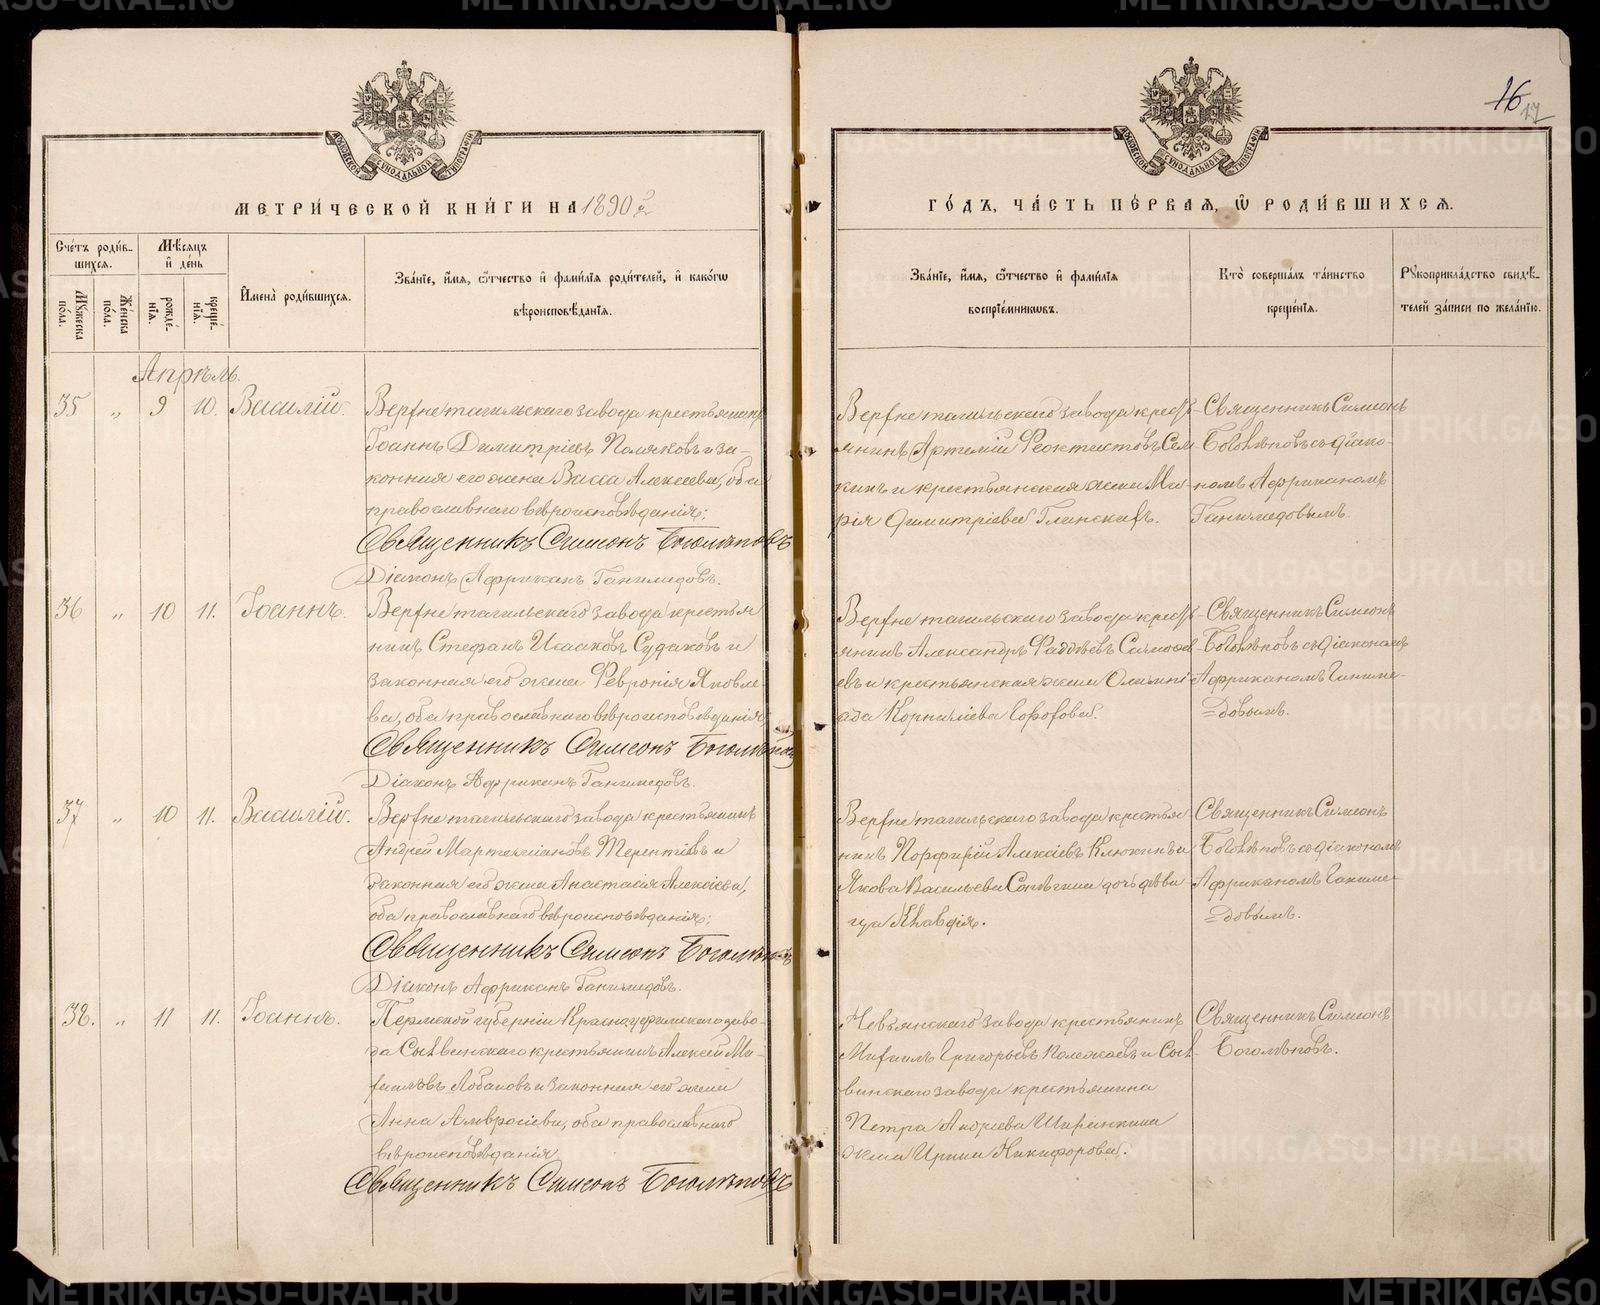 16
17
МЕТРИЧЕСКОЙ КНИГИ НА 1890 г.
Счетъ родив-
шихся.
Мѣсяцъ
и день
Имена родившихся.
Званіе, имя, отчество и фамилія родителей, и какогѡ
вѣроисповѣданія.
Мужеска
пола.
Женска
пола.
рожде-
нія.
креще-
нія.
Апрѣль.
35 „ 9 10. Василій.
Верхнетагильскаго завода крестьянинъ
Іоаннъ Димитріевъ Поляковъ и за-
конная его жена Васса Алексѣева, оба
православнаго вѣроисповѣданія;
Священникъ Симеонъ Боголѣповъ
Діаконъ Африканъ Ганимедовъ.
36 „ 10 11. Іоаннъ.
Верхнетагильскаго завода крестья
нинъ Стефанъ Исааковъ Судаковъ и
законная его жена Февронія Яковле-
ва, оба православнаго вѣроисповѣданія;
Священникъ Симеонъ Боголѣповъ
Діаконъ Африканъ Ганимедовъ.
37 „ 10 11. Василій.
Верхнетагильскаго завода крестьянинъ
Андрей Мартеміановъ Терентіевъ и
законная его жена Анастасія Алексіева,
оба православнаго вѣроисповѣданія;
Священникъ Симеонъ Боголѣповъ
Діаконъ Африканъ Ганимедовъ.
38. „ 11 11. Іоаннъ.
Пермской губерніи Красноуфимскаго заво-
да Сылвинскаго крестьянинъ Алексѣй Ми-
хаиловъ Лобановъ и законная его жена
Анна Амвросіева, оба православнаго
вѣроисповѣданія
Священникъ Симеонъ Боголѣповъ
ГОДЪ, ЧАСТЬ ПЕРВАЯ, Ѡ РОДИВШИХСЯ.
Званіе, имя, отчество и фамилія
воспріемниковъ.
Кто совершалъ таинство
крещенія.
Рукоприкладство свидѣ-
телей записи по желанію.
Верхнетагильскаго завода крест-
янинъ Артемій Феоктистовъ Сем
кинъ и крестьянская жена Ма-
рія Димитріева Глинскихъ.
Священникъ Симеонъ
Боголѣповъ съ діако-
номъ Африканомъ
Ганимедовымъ.
Верхнетагильскаго завода крест-
янинъ Александръ Фаддѣевъ
евъ и крестьянская жена Олимпі
ада Корниліева
Священникъ Симеонъ
Боголѣповъ съ діакономъ
Африканомъ Ганиме-
=довымъ.
Верхнетагильскаго завода крестья
нинъ Порфирій Алексіевъ Клюкинъ и
Якова Васильева дочь дѣви
ца Клавдія.
Священникъ Симеонъ
Боголѣповъ съ діакономъ
Африканомъ Ганиме-
=довымъ.
Невьянскаго завода крестьянинъ
Михаилъ Григорьевъ Полежаевъ и Сыл-
винскаго завода крестьянина
Петра Андреева Ширинкина
жена Ирина Никифорова.
Священникъ Симеонъ
Боголѣповъ.
METRIKI.GASO-URAL.RU